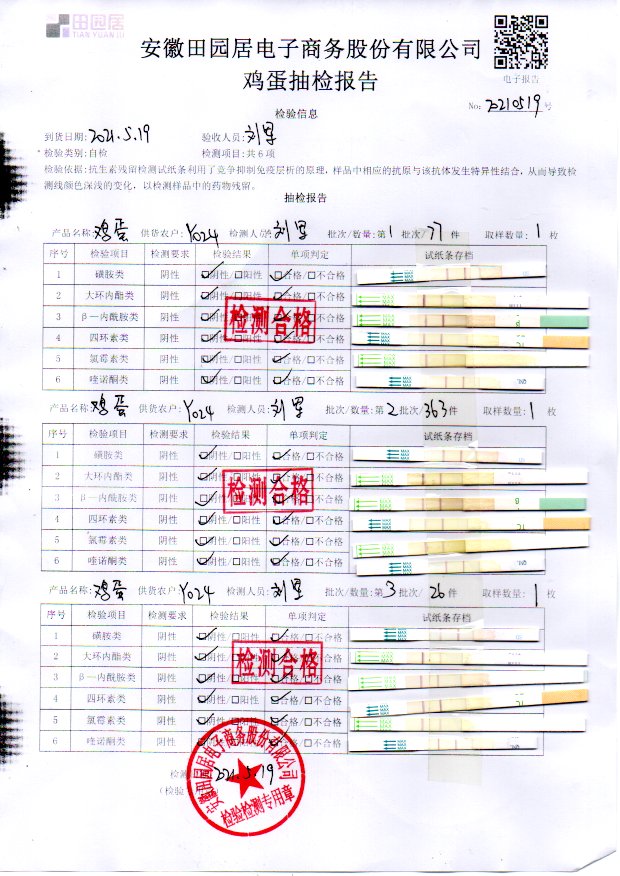 田园居
TIAN YUAN JU
安徽田园居电子商务股份有限公司
鸡蛋抽检报告
电子报告
No: 20210519号
检验信息
到货日期: 2021.5.19 验收人员: 刘军
检验类别:自检 检测项目:共6项
检验依据:抗生素残留检测试纸条利用了竞争抑制免疫层析的原理，样品中相应的抗原与该抗体发生特异性结合，从而导致检
测线颜色深浅的变化，以检测样品中的药物残留。
抽检报告
产品名称: 鸡蛋 供货农户: Y024 检测人员: 刘军 批次/数量:第1批次/77件 取样数量: 1枚
序号 检验项目 检测要求 检验结果 单项判定 试纸条存档
1 磺胺类 阴性 ☑阴性/□阳性 ☑合格/□不合格
2 大环内酯类 阴性 ☑阴性/□阳性 ☑合格/□不合格
3 β—内酰胺类 阴性 ☑阴性/□阳性 ☑合格/□不合格
4 四环素类 阴性 ☑阴性/□阳性 ☑合格/□不合格
5 氯霉素类 阴性 ☑阴性/□阳性 ☑合格/□不合格
6 喹诺酮类 阴性 ☑阴性/□阳性 ☑合格/□不合格
检测合格
产品名称: 鸡蛋 供货农户: Y024 检测人员: 刘军 批次/数量:第2批次/363件 取样数量: 1枚
序号 检验项目 检测要求 检验结果 单项判定 试纸条存档
1 磺胺类 阴性 ☑阴性/□阳性 ☑合格/□不合格
2 大环内酯类 阴性 ☑阴性/□阳性 ☑合格/□不合格
3 β—内酰胺类 阴性 ☑阴性/□阳性 ☑合格/□不合格
4 四环素类 阴性 ☑阴性/□阳性 ☑合格/□不合格
5 氯霉素类 阴性 ☑阴性/□阳性 ☑合格/□不合格
6 喹诺酮类 阴性 ☑阴性/□阳性 ☑合格/□不合格
检测合格
产品名称: 鸡蛋 供货农户: Y024 检测人员: 刘军 批次/数量:第3批次/26件 取样数量: 1枚
序号 检验项目 检测要求 检验结果 单项判定 试纸条存档
1 磺胺类 阴性 ☑阴性/□阳性 ☑合格/□不合格
2 大环内酯类 阴性 ☑阴性/□阳性 ☑合格/□不合格
3 β—内酰胺类 阴性 ☑阴性/□阳性 ☑合格/□不合格
4 四环素类 阴性 ☑阴性/□阳性 ☑合格/□不合格
5 氯霉素类 阴性 ☑阴性/□阳性 ☑合格/□不合格
6 喹诺酮类 阴性 ☑阴性/□阳性 ☑合格/□不合格
检测合格
2021.5.19
安徽田园居电子商务股份有限公司
检验检测专用章